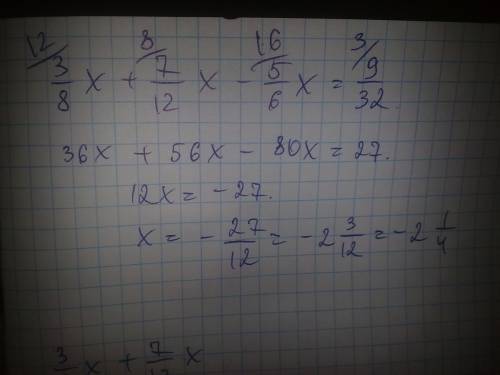 12/ 3/8 x + 8/ 7/12 x - 16/ 5/6 x = 3/ 9/32
36x + 56x - 80x = 27.
12x = -27.
x = - 27/12 = -2 3/12 = -2 1/4
3 x + 7/12 x